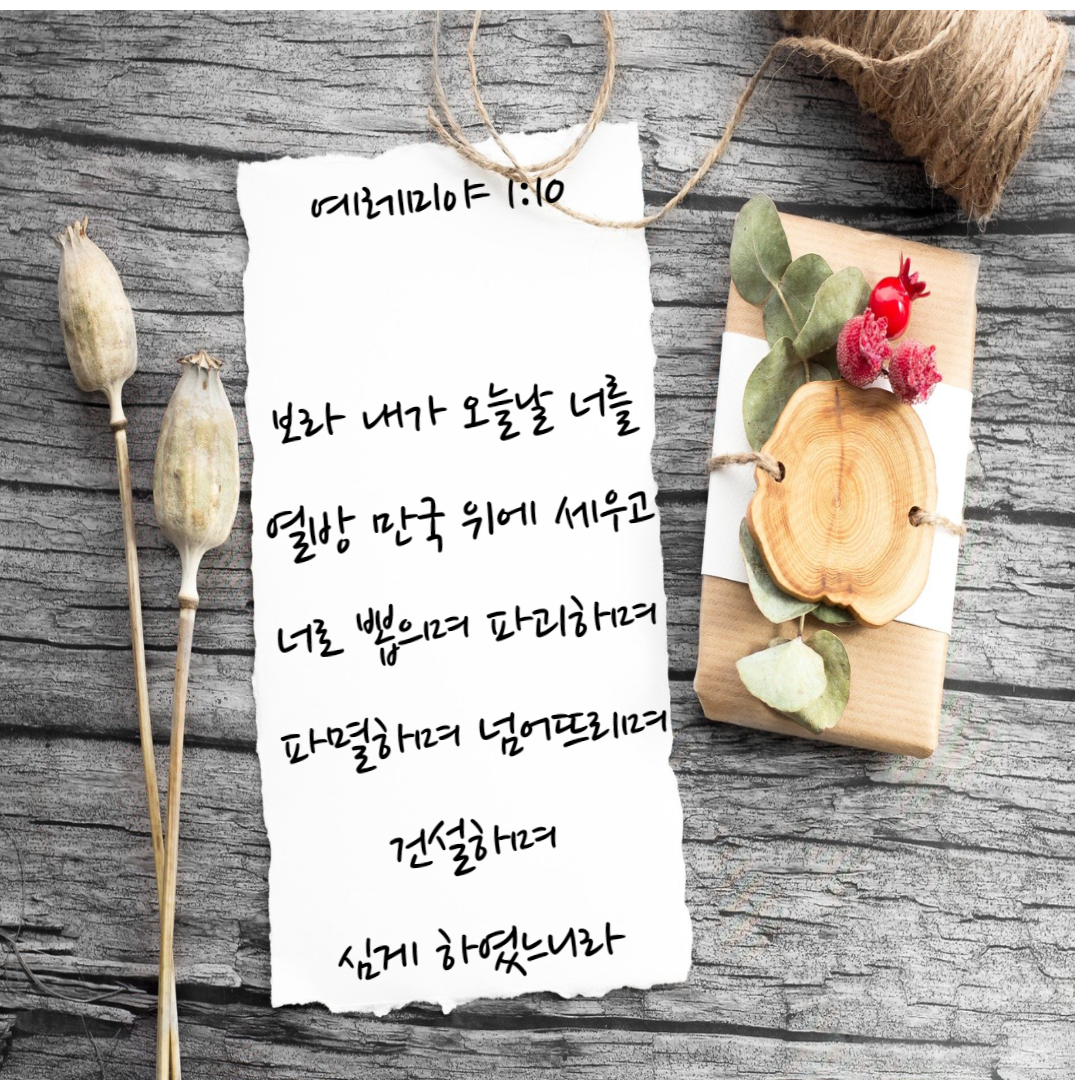 예레미야 1:10
보라 내가 오늘날 너를
열방 만국 위에 세우고
너로 뽑으며 파괴하며
파멸하며 넘어뜨리며
건설하며
심게 하였느니라